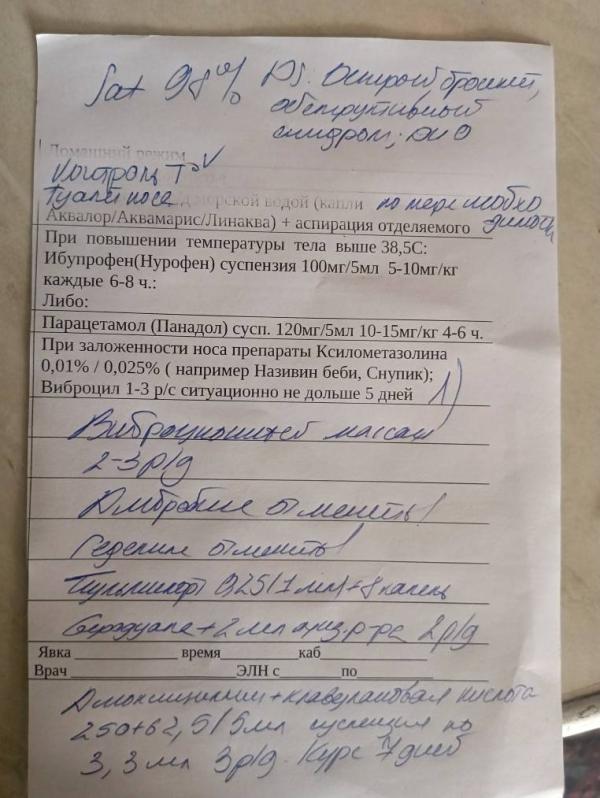 Sat 98% Ds: Острый бронхит,
обструктивный
синдром, ДН 0
Домашний режим
Контроль T°
Туалет носа морской водой (капли по мере необхо
Аквалор/Аквамарис/Линаква) + аспирация отделяемого димости
При повышении температуры тела выше 38,5С:
Ибупрофен(Нурофен) суспензия 100мг/5мл 5-10мг/кг
каждые 6-8 ч.:
Либо:
Парацетамол (Панадол) сусп. 120мг/5мл 10-15мг/кг 4-6 ч.
При заложенности носа препараты Ксилометазолина
0,01% / 0,025% ( например Називин беби, Снупик);
Виброцил 1-3 р/с ситуационно не дольше 5 дней 1)
Вибрационный массаж
2-3 р/д
отменить!
Геделикс отменить!
Пульмикорт 0,25/1 мл + 8 капель
Беродуала + 2 мл физ. р-ра 2 р/д
Явка время каб
Врач ЭЛН с по
Амоксициллин + клавулановая кислота
250+62,5/5мл суспензия по
3,3 мл 3р/д. Курс 7 дней